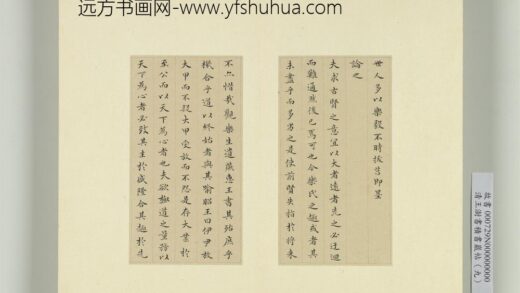 远方书画网-www.yfshuhua.com
世人多以樂毅不時拔莒即墨
論之
夫求古賢之意宜以大者遠者先之必迂迴
而難通然後已焉可也今樂氏之趣或者其
未盡乎而多劣之是使前賢失指於將来
不亦惜哉觀樂生遺燕惠王書其殆庶乎
機合乎道以終始者與其喻昭王曰伊尹放
大甲而不疑大甲受放而不怨是存大業於
至公而以天下為心者也夫欲極道之量務以
天下為心者必致其主於盛隆合其趣於先
故書 000729N000000000
清王澍書積書巖帖（九）